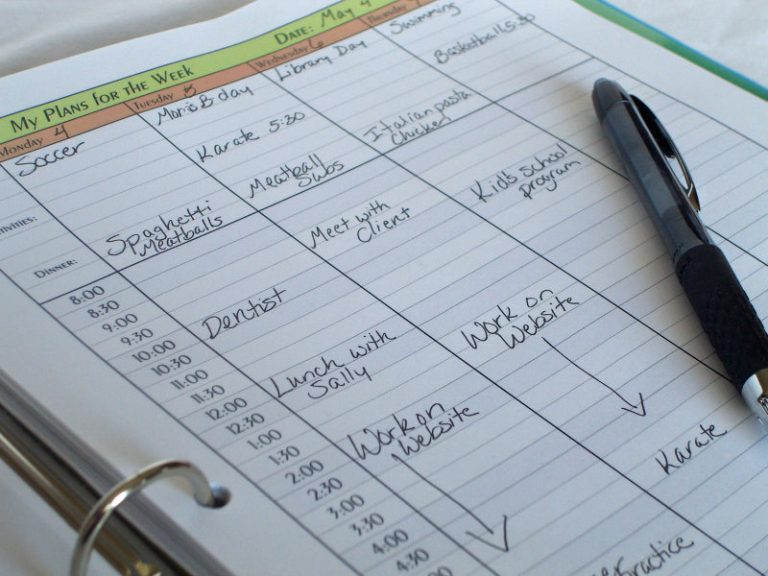 MY PLANS FOR THE WEEK
DATE: May 4
MONDAY 4
TUESDAY 5
WEDNESDAY 6
THURSDAY 7
Soccer
Mom's B day
Library Day
Swimming
Karate 5:30
Basketball 5:30
DINNER:
Spaghetti
Meatballs
Meatball
Subs
Italian pasta
Chicken
8:00
8:30
9:00
9:30
10:00
10:30
11:00
11:30
12:00
12:30
1:00
1:30
2:00
2:30
3:00
3:30
4:00
4:30
Dentist
Lunch with
Sally
Work on
Website
Meet with
Client
Work on
Website
Kid's school
program
Karate
Practice